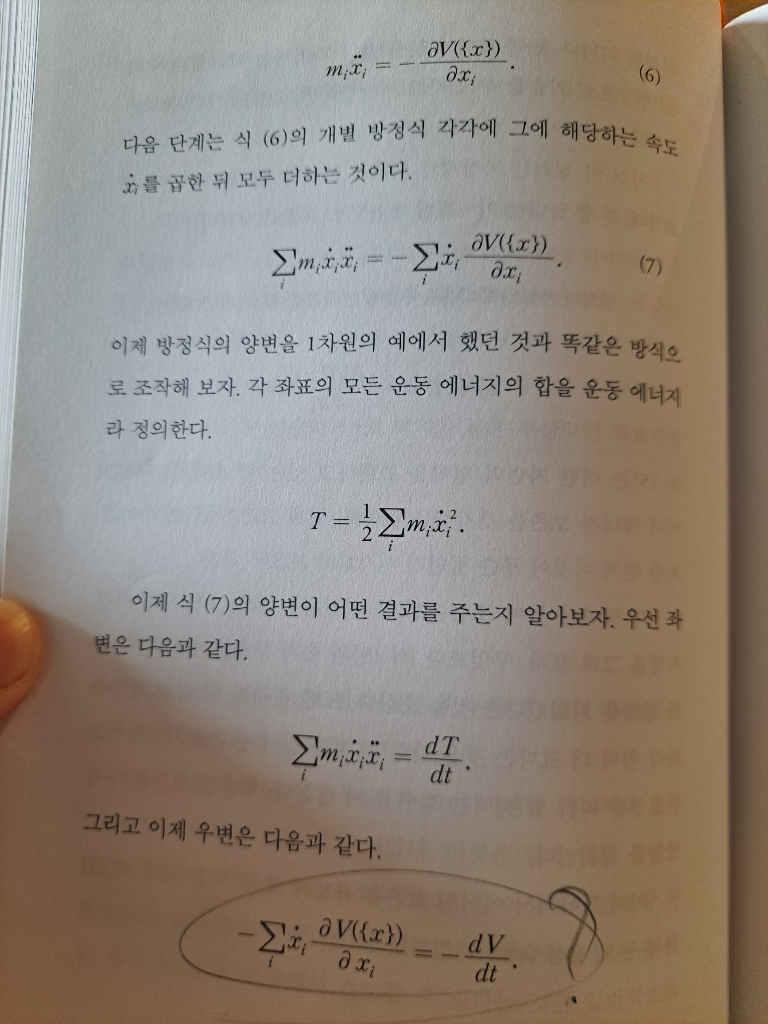 mᵢẍᵢ = − ∂V({x})/∂xᵢ. (6)
다음 단계는 식 (6)의 개별 방정식 각각에 그에 해당하는 속도
ẋᵢ를 곱한 뒤 모두 더하는 것이다.
∑ᵢ mᵢẋᵢẍᵢ = − ∑ᵢ ẋᵢ ∂V({x})/∂xᵢ. (7)
이제 방정식의 양변을 1차원의 예에서 했던 것과 똑같은 방식으
로 조작해 보자. 각 좌표의 모든 운동 에너지의 합을 운동 에너지
라 정의한다.
T = 1/2 ∑ᵢ mᵢẋᵢ².
이제 식 (7)의 양변이 어떤 결과를 주는지 알아보자. 우선 좌
변은 다음과 같다.
∑ᵢ mᵢẋᵢẍᵢ = dT/dt.
그리고 이제 우변은 다음과 같다.
− ∑ᵢ ẋᵢ ∂V({x})/∂xᵢ = − dV/dt. ?